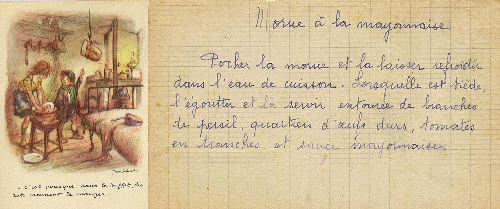 Morue à la mayonnaise
Pocher la morue et la laisser refroidir
dans l'eau de cuisson. Lorsquelle est tiède,
l'égoutter et la servir entourée de branches
de persil, quartiers d'œufs durs, tomates
en tranches et sauce mayonnaise.
- C'est presque dans le buffet, les